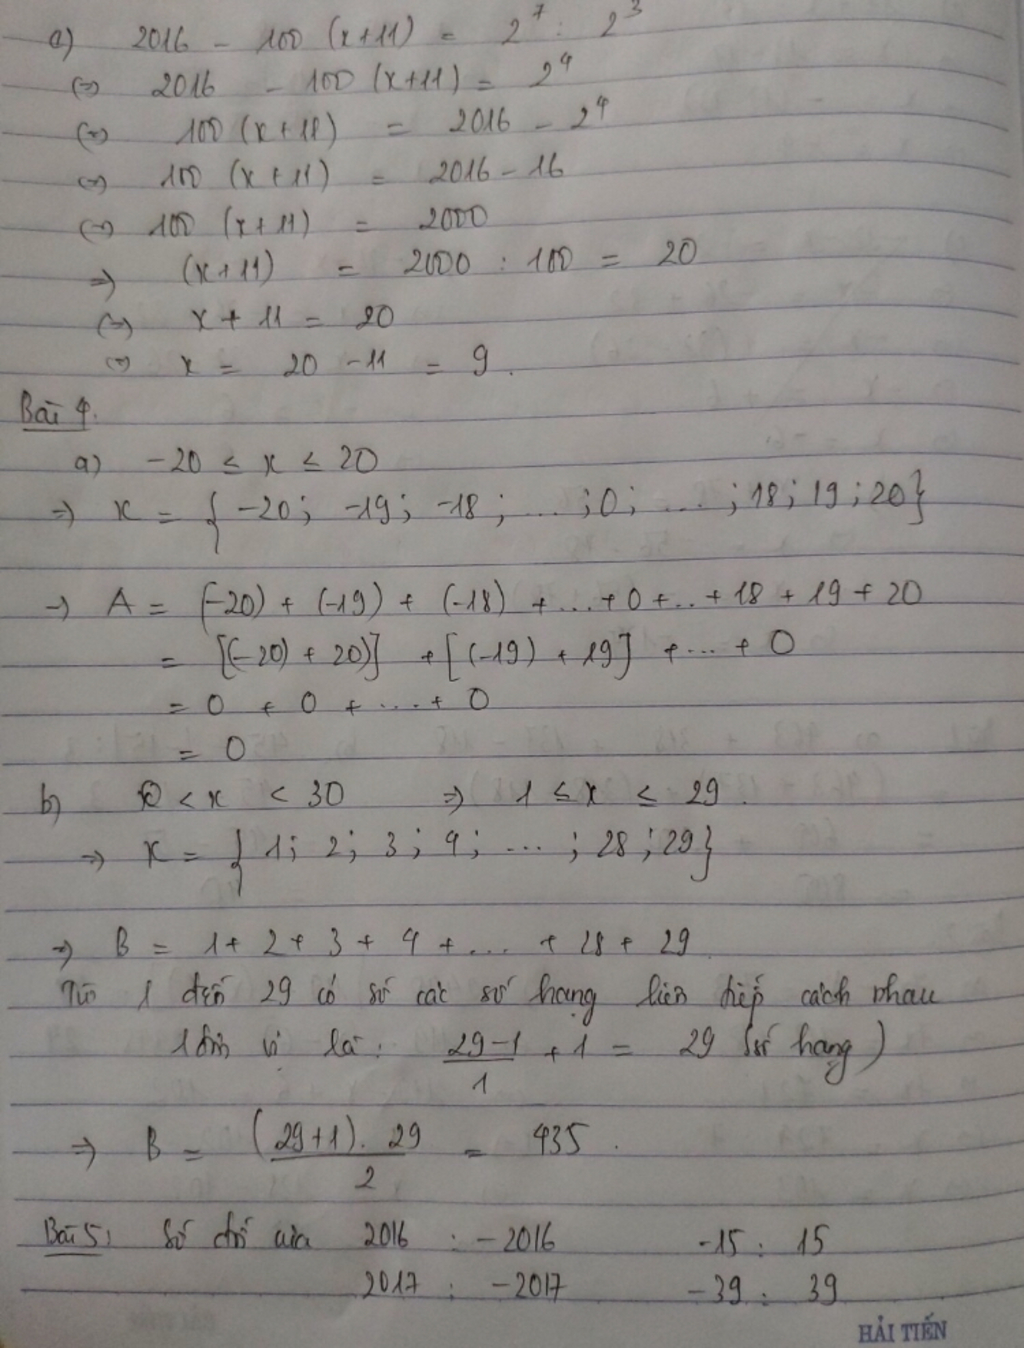 a) 2016 - 100 (x+11) = 2^7 : 2^3
(=) 2016 - 100 (x+11) = 2^4
(=) 100 (x+11) = 2016 - 2^4
(=) 100 (x+11) = 2016 - 16
(=) 100 (x+11) = 2000
=> (x+11) = 2000 : 100 = 20
(=) x + 11 = 20
(=) x = 20 - 11 = 9.
Bài 4.
a) -20 ≤ x ≤ 20
=> x = { -20; -19; -18; ... ; 0; ... ; 18; 19; 20}
=> A = (-20) + (-19) + (-18) + ... + 0 + .. + 18 + 19 + 20
= [(-20) + 20)] + [(-19) + 19] + ... + 0
= 0 + 0 + ... + 0
= 0
b) 0 < x < 30 => 1 ≤ x ≤ 29.
=> x = { 1; 2; 3; 4; ... ; 28; 29}
=> B = 1 + 2 + 3 + 4 + ... + 28 + 29
Từ 1 đến 29 có số các số hạng liên tiếp cách nhau
1 đơn vị là: (29-1)/1 + 1 = 29 (số hạng)
=> B = (29+1). 29 / 2 = 435.
Bài 5: Số đối của 2016 : -2016 -15 : 15
2017 : -2017 -39 : 39
HẢI TIẾN